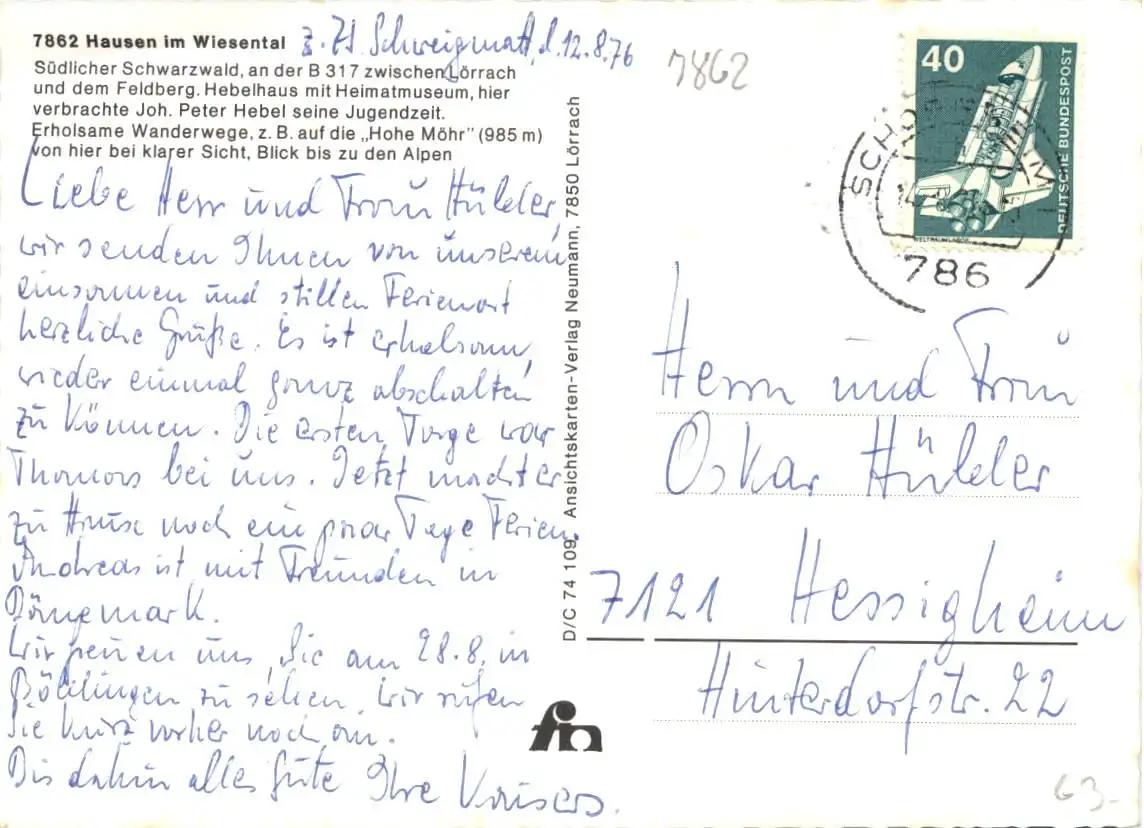 7862 Hausen im Wiesental
Südlicher Schwarzwald, an der B 317 zwischen Lörrach
und dem Feldberg. Hebelhaus mit Heimatmuseum, hier
verbrachte Joh. Peter Hebel seine Jugendzeit.
Erholsame Wanderwege, z. B. auf die „Hohe Möhr" (985 m)
von hier bei klarer Sicht, Blick bis zu den Alpen
z. Zt. Schweigmatt, d. 12.8.76
Liebe Herr und Frau Hülder,
wir senden Ihnen von unserem
einsamen und stillen Ferienort
herzliche Grüße. Es ist erholsam,
wieder einmal ganz abschalten
zu können. Die ersten Tage war
Thomas bei uns. Jetzt macht er
zu Hause noch ein paar Tage Ferien.
Andreas ist mit Freunden in
Dänemark.
Wir freuen uns, Sie am 28.8. in
Böblingen zu sehen. Wir rufen
Sie kurz vorher noch an.
Bis dahin alles Gute Ihre Kaisers.
D/C 74 109 Ansichtskarten-Verlag Neumann, 7850 Lörrach
fin
7862
40
DEUTSCHE BUNDESPOST
WELTRAUMLABOR
SCHO M
786
Herrn und Frau
Oskar Hülder
7121 Hessigheim
Hinterdorfstr. 22
63.-